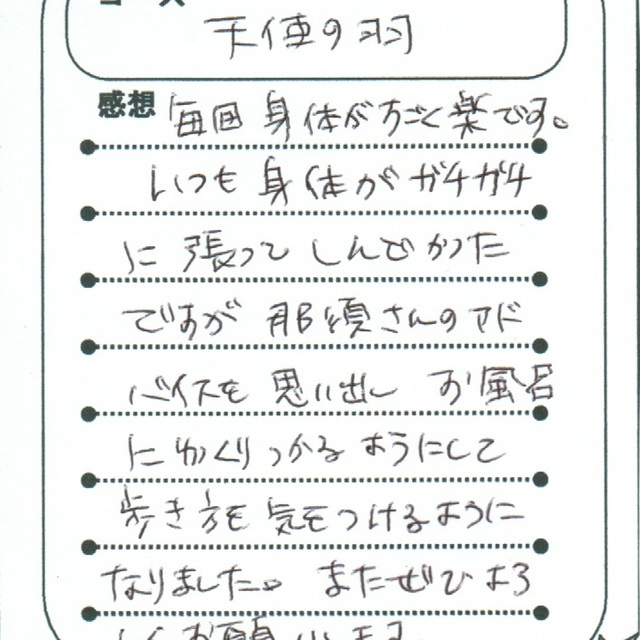 コース
天使の羽
感想 毎回 身体がすごく楽です。
いつも 身体が ガチガチ
に 張って しんどかった
ですが 那須さんの アド
バイスを 思い出し お風呂
に ゆっくり つかる ようにして
歩き方を 気をつけるように
なりました。 またぜひ よろ
しくお願いします。